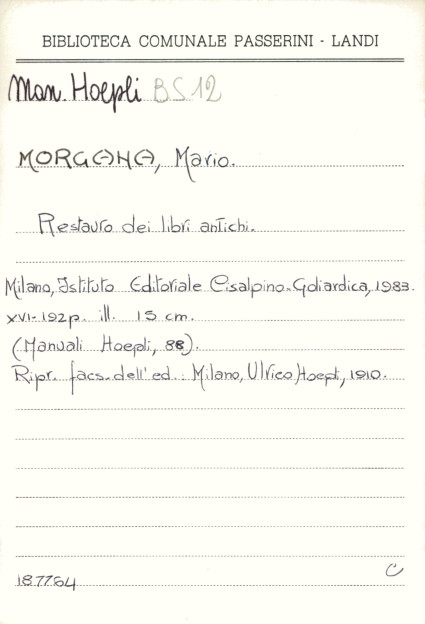 BIBLIOTECA COMUNALE PASSERINI - LANDI
Man. Hoepli BS12
MORGANA, Mario.
Restauro dei libri antichi.
Milano, Istituto Editoriale Cisalpino-Goliardica, 1983.
XVI-192 p. ill. 15 cm.
(Manuali Hoepli, 88).
Ripr. facs. dell'ed.: Milano, Ulrico Hoepli, 1910.
187764 C